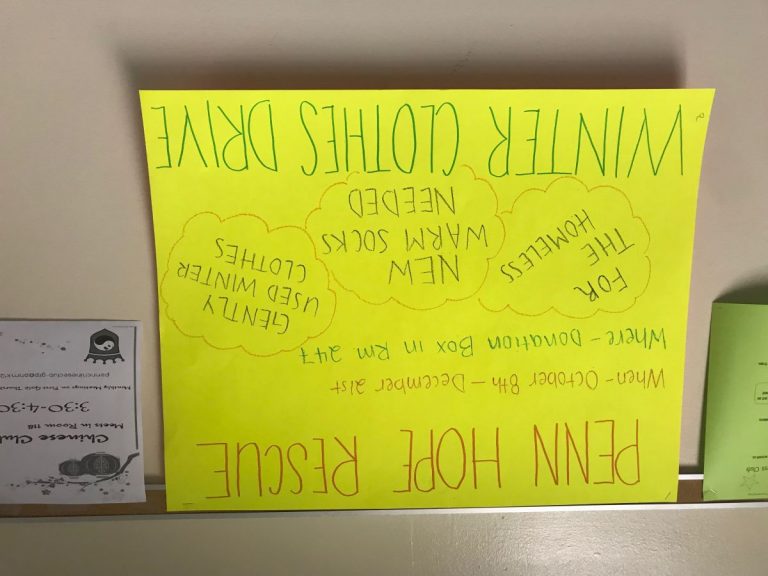 PENN HOPE RESCUE
When - October 8th - December 21st
Where - Donation Box in Rm 247
FOR
THE
HOMELESS
NEW
WARM SOCKS
NEEDED
GENTLY
USED WINTER
CLOTHES
WINTER CLOTHES DRIVE
Chinese Clu
Meets in Room 118
3:30-4:30
Monthly Meetings on First Gold
Club